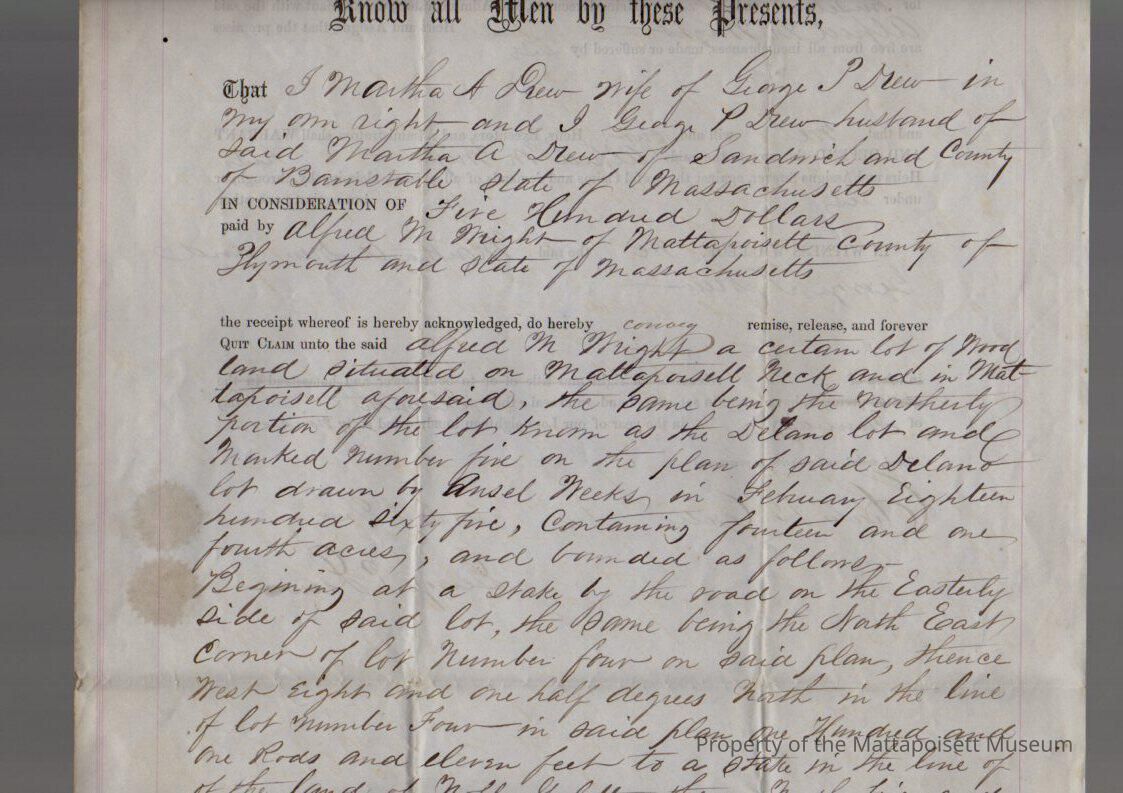 Know all Men by these Presents,
That I Martha A Drew wife of George P Drew in
my own right and I George P Drew husband of
said Martha A Drew of Sandwich and County
of Barnstable State of Massachusetts
IN CONSIDERATION OF Five Hundred Dollars
paid by Alfred M Wright of Mattapoisett County of
Plymouth and State of Massachusetts
the receipt whereof is hereby acknowledged, do hereby convey remise, release, and forever
QUIT CLAIM unto the said Alfred M Wright a certain lot of Wood
land situated on Mattapoisett Neck and in Mat
tapoisett aforesaid, the same being the Northerly
portion of the lot known as the Delano lot and
Marked Number five on the plan of said Delano
lot drawn by Ansel Weeks in February Eighteen
hundred sixty five, Containing fourteen and one
fourth acres, and bounded as follows
Begining at a stake by the road on the Easterly
side of said lot, the same being the North East
Corner of lot Number four on said plan, thence
West Eight and one half degrees North in the line
of lot Number Four in said plan one Hundred and
one Rods and eleven feet to a stake in the line of
of the land of
Property of the Mattapoisett Museum